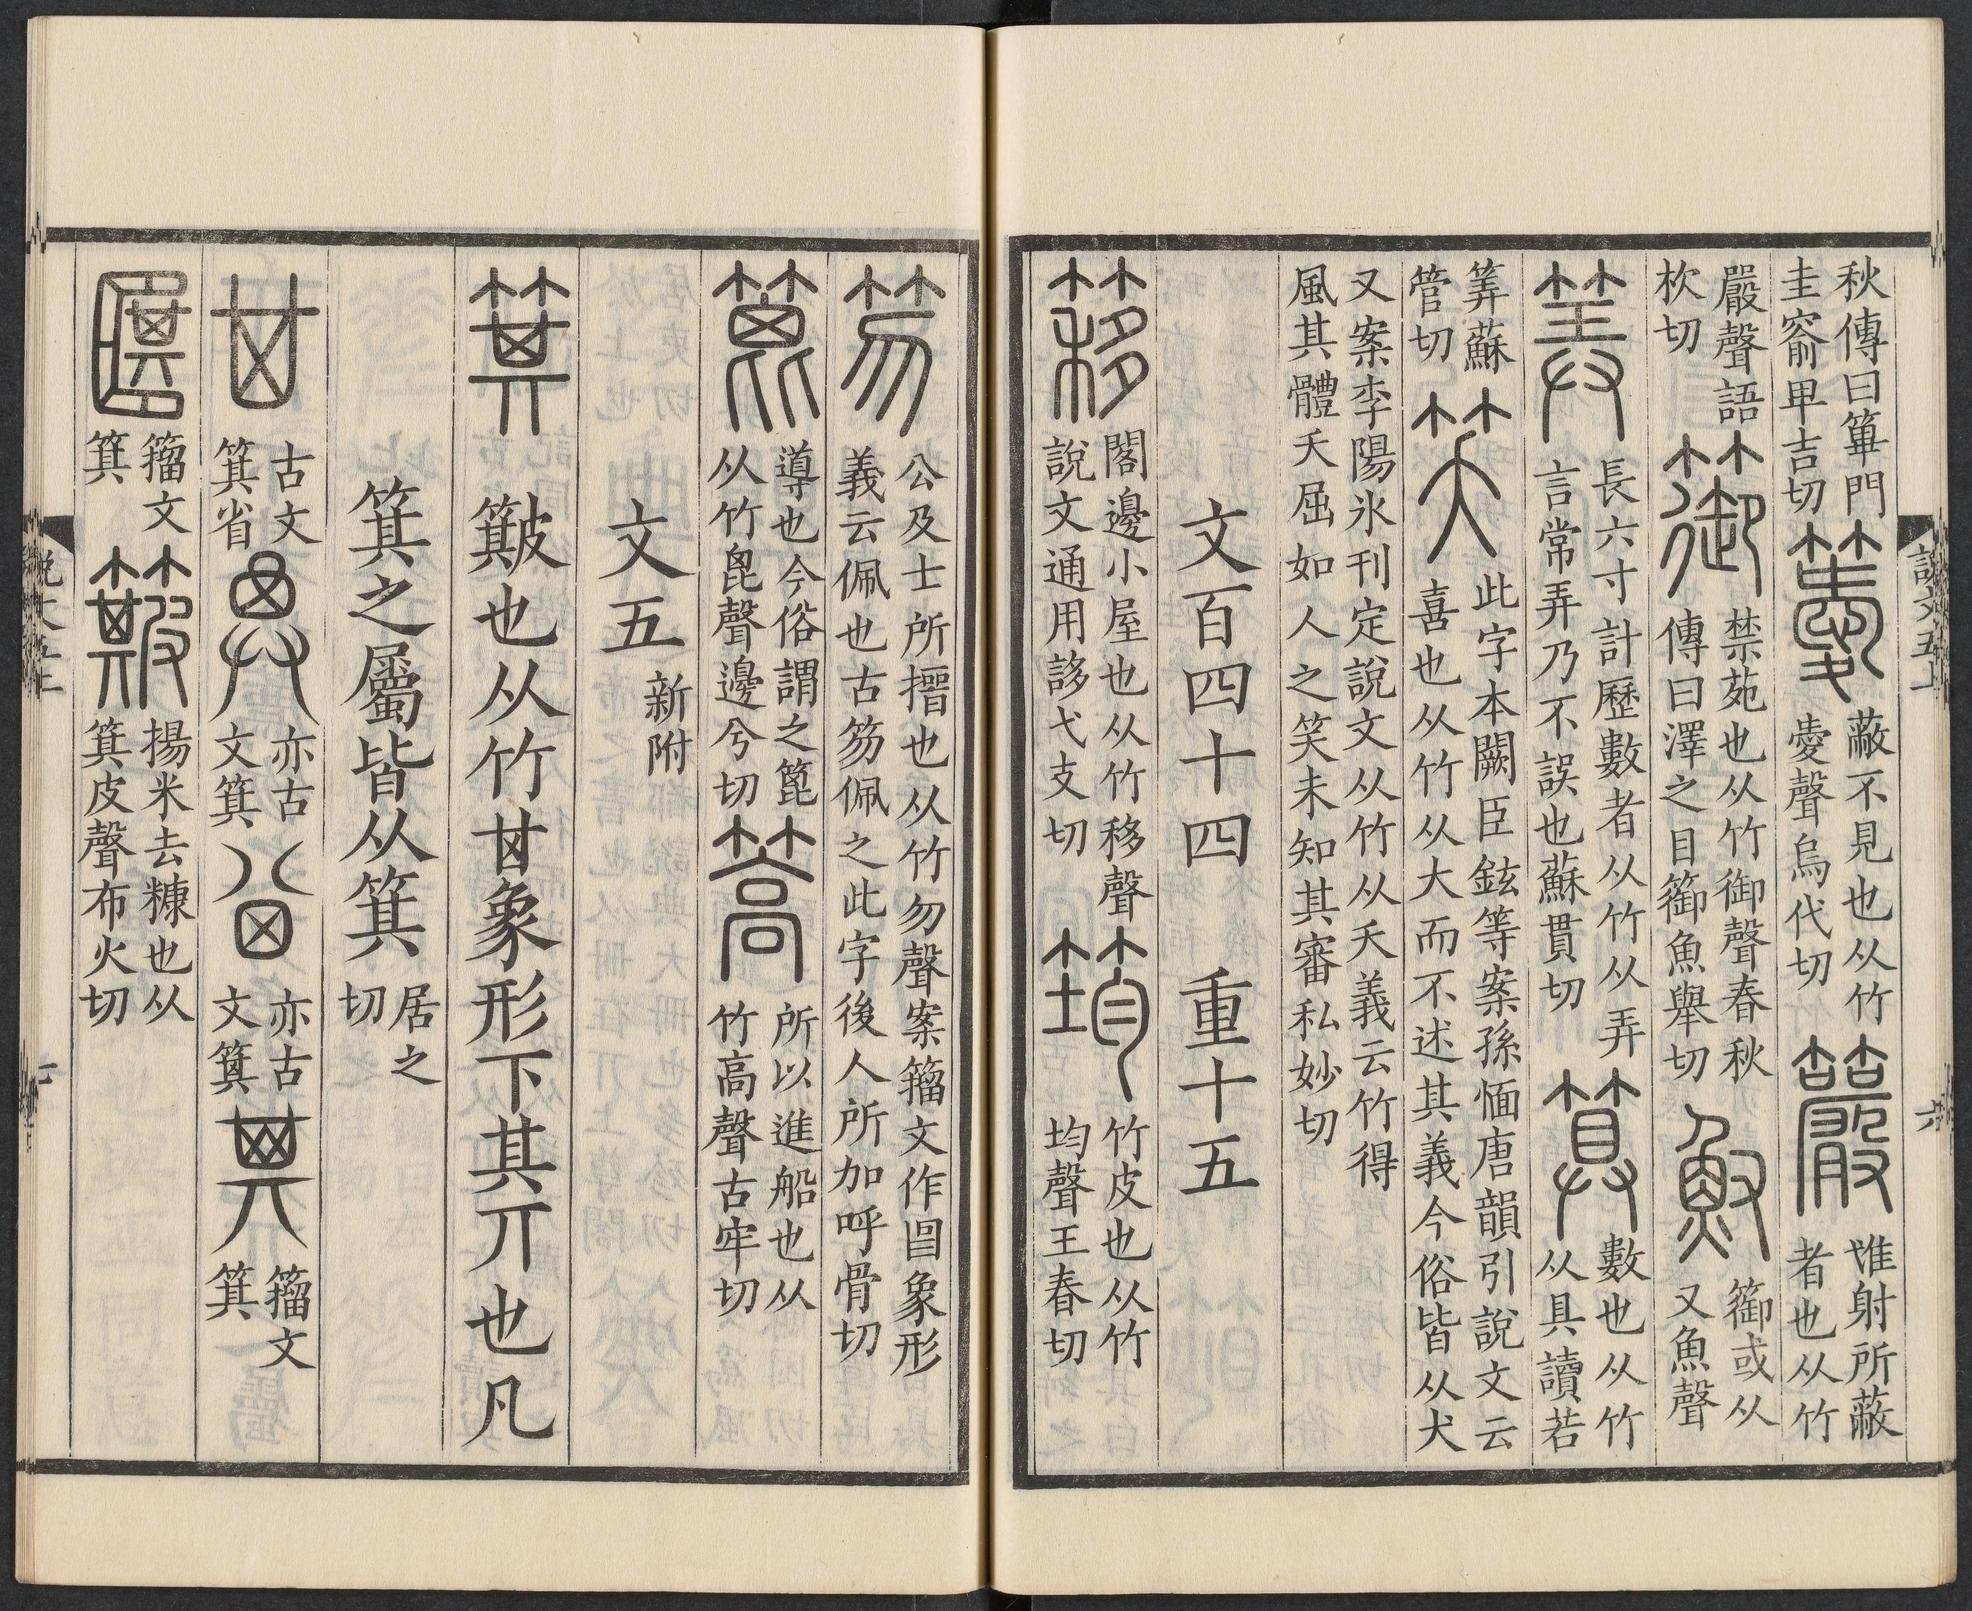 秋傳曰篳門
圭窬甲吉切
䉷
蔽不見也从竹
愛聲烏代切
籬
惟射所蔽
者也从竹
嚴聲語
杴切
篽
禁苑也从竹御聲春秋
傳曰澤之目篽魚舉切
𩵎
篽或从
又魚聲
筭
長六寸計歷數者从竹从弄
言常弄乃不誤也蘇貫切
算
數也从竹
从具讀若
筭蘇
管切
笑
此字本闕臣鉉等案孫愐唐韻引說文云
喜也从竹从犬而不述其義今俗皆从犬
又案李陽冰刊定說文从竹从夭義云竹得
風其體夭屈如人之笑未知其審私妙切
文百四十四　重十五
簃
閣邊小屋也从竹移聲
說文通用誃弋支切
筠
竹皮也从竹
均聲王春切
笏
公及士所搢也从竹勿聲案籀文作𡇌象形
義云佩也古笏佩之此字後人所加呼骨切
篦
導也今俗謂之篦
从竹𣬉聲邊兮切
篙
所以進船也从
竹高聲古牢切
文五新附
箕
簸也从竹𠀠象形下其丌也凡
箕之屬皆从箕
居之
切
𠀠
古文
箕省
𠔛
亦古
文箕
𠔋
亦古
文箕
其
籀文
箕
匴
籀文
箕
簸
揚米去糠也从
箕皮聲布火切
說文五上
六